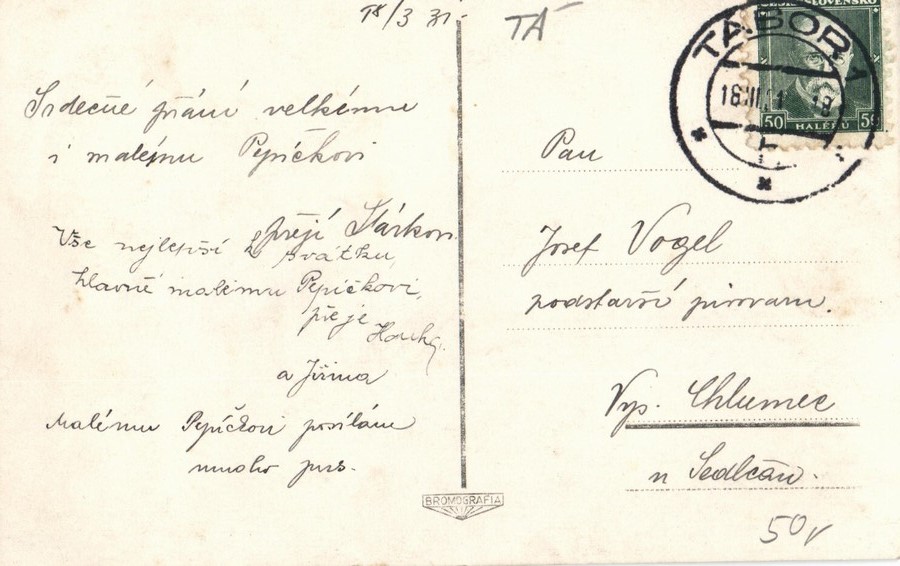 18/3 31.
TÁ
ČESKOSLOVENSKO
TÁBOR 1
18.III.31 18
50 HALÉŘŮ 50
Srdečné přání velkému
i malému Pepíčkovi
přejí Stárkovi.
Vše nejlepší k svátku,
hlavně malému Pepíčkovi,
přeje
a Jiřina
Malému Pepíčkovi posílám
mnoho pus.
BROMOGRAFIA
Pan
Josef Vogel
podstarší pivovaru.
Vys. Chlumec
u Sedlčan.
50